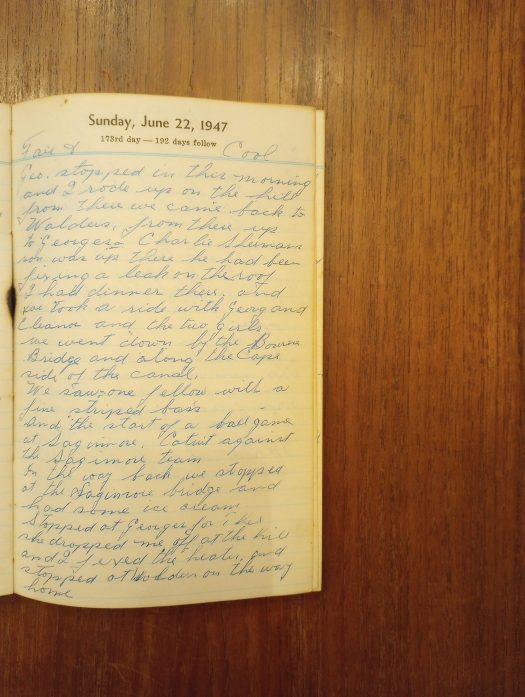 Sunday, June 22, 1947
173rd day — 192 days follow
Fair & Cool
Geo. stopped in this morning
and I rode up on the hill
from there we came back to
Walders, from there up
to Georges. Charlie
son was up there he had been
fixing a leak on the roof
I had dinner there, and
we took a ride with Georg and
Eleanor and the two girls
we went down by the Bourne
Bridge and along the Cape
side of the canal.
We saw one fellow with a
fine striped bass
and the start of a ball game
at Sagimore. Cotuit against
the Sagimore team
On the way back we stopped
at the Sagimore bridge and
had some ice cream
Stopped at Georges for
she dropped me off at the hill
and I fixed the heater, and
stopped at Walders on the way
home